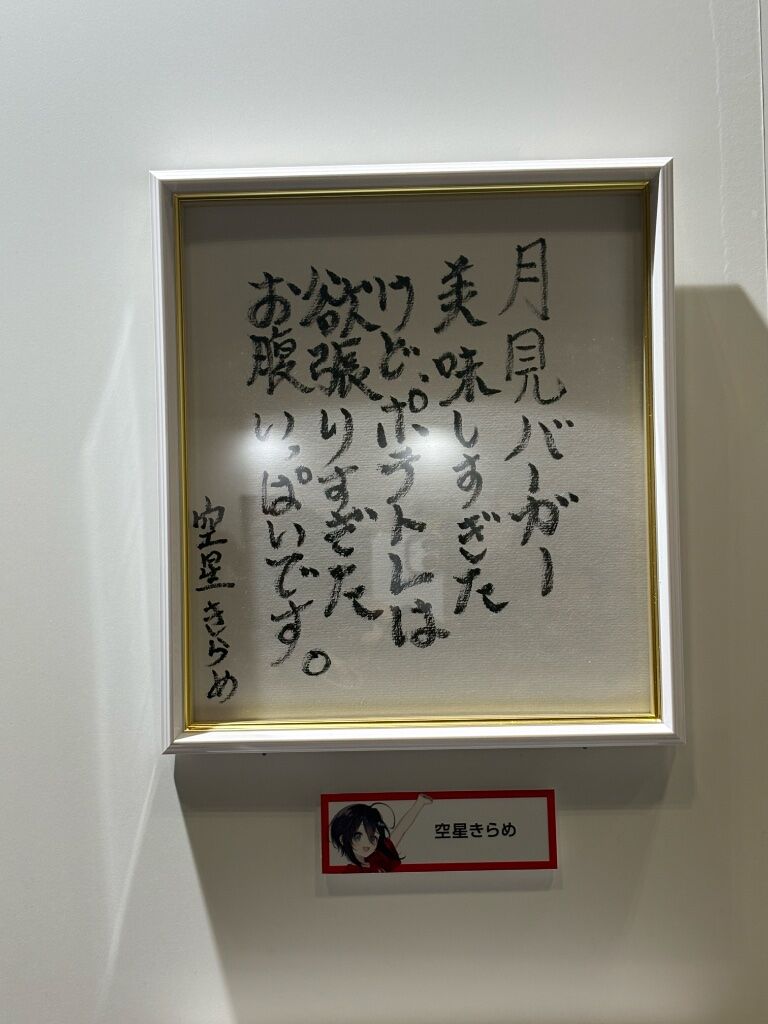 月見バーガー
美味しすぎた
けど、ポテトレは
欲張りすぎた
お腹いっぱいです。
空星きらめ
空星きらめ